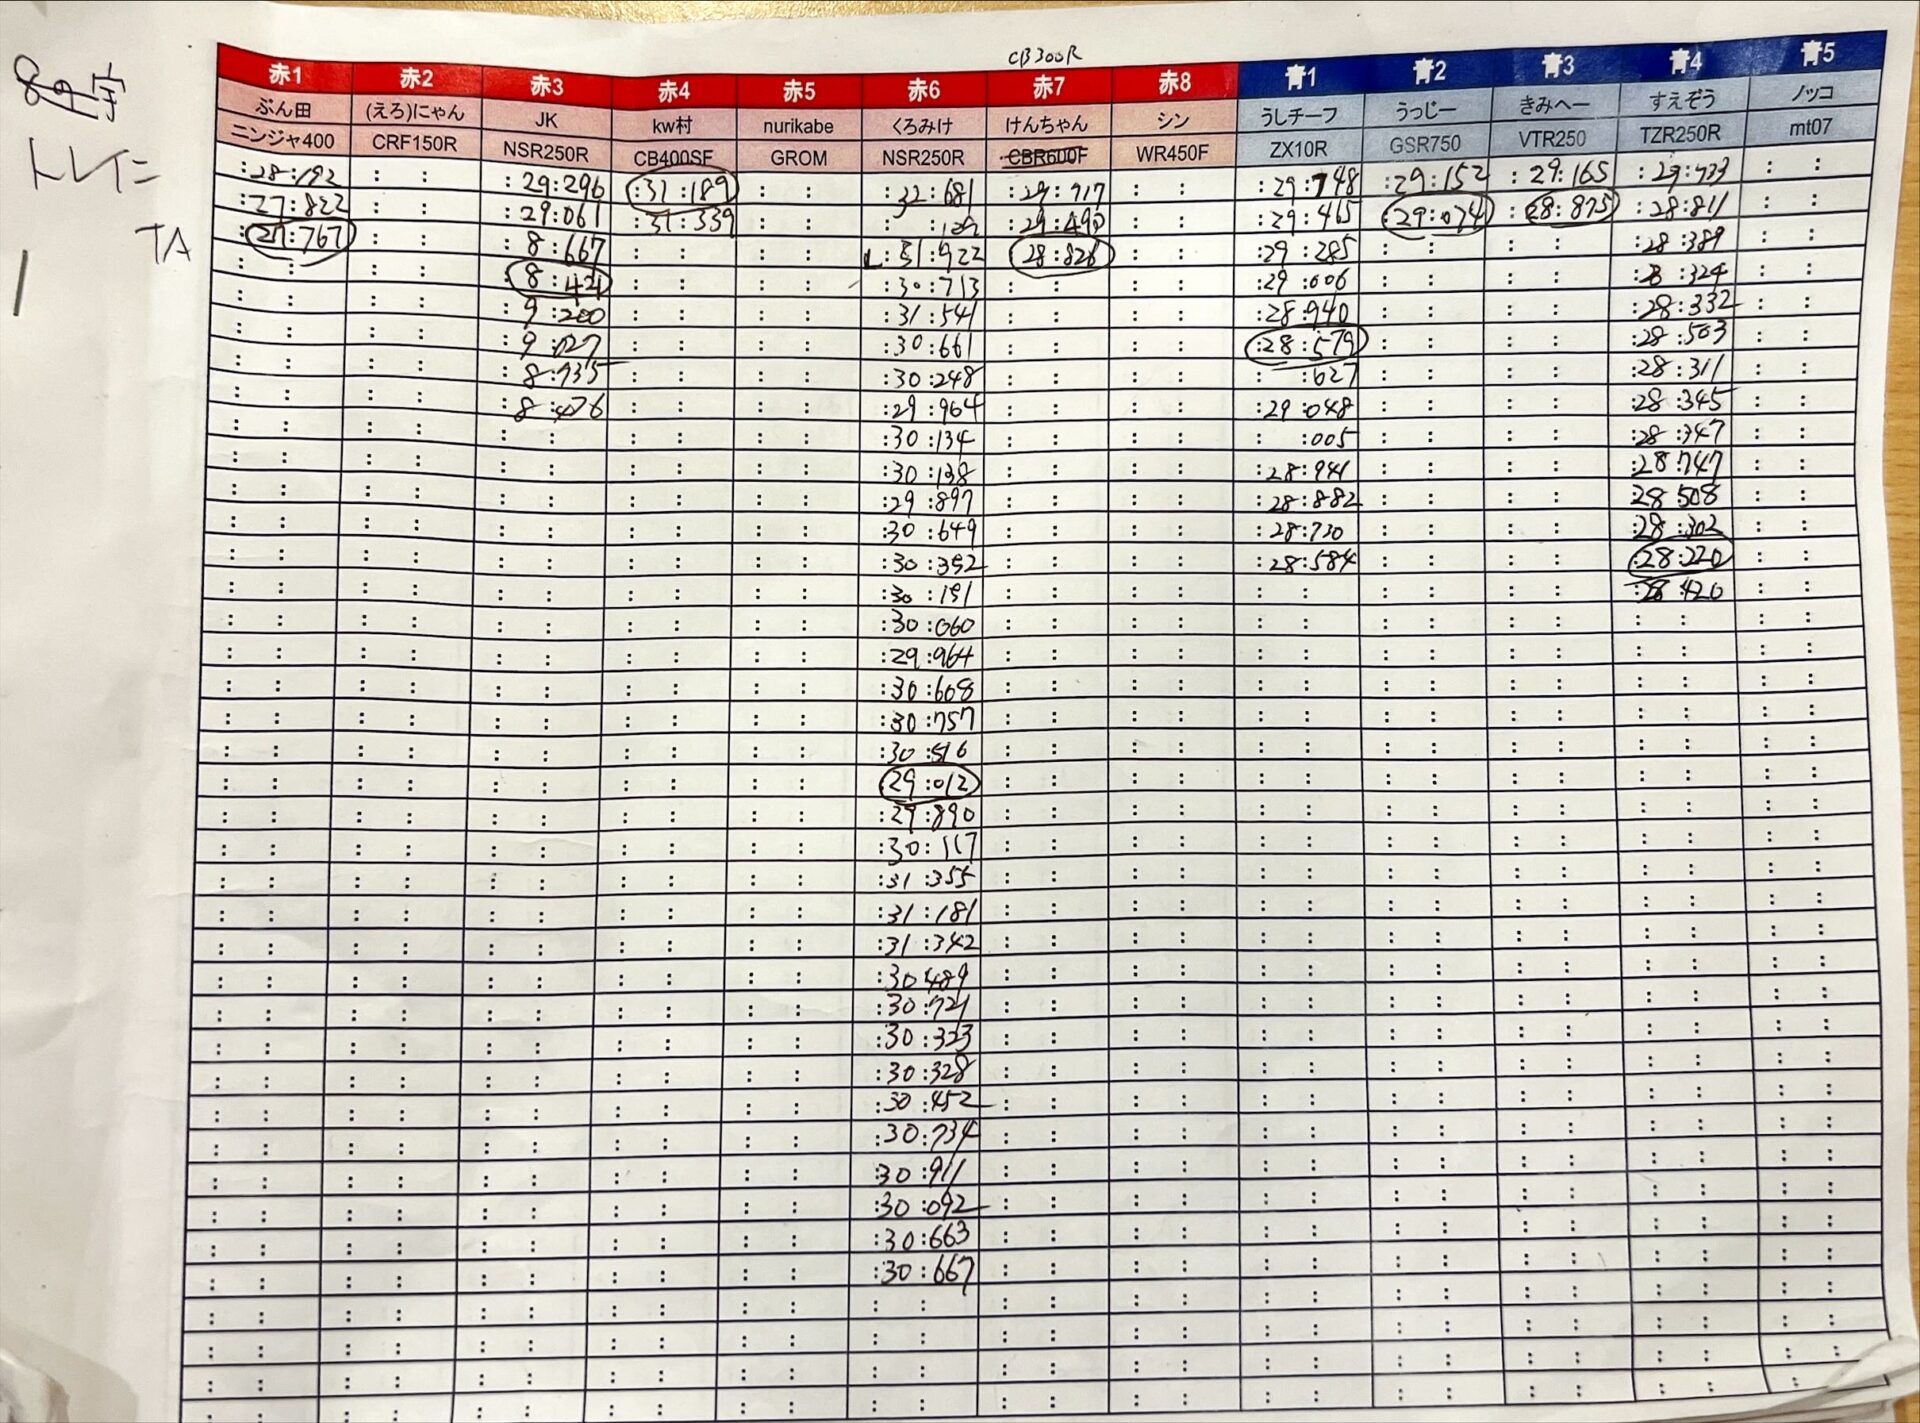 CB300R
8の字
トレイニ
TA
赤1 赤2 赤3 赤4 赤5 赤6 赤7 赤8 青1 青2 青3 青4 青5
ぶん田 (えろ)にゃん JK kw村 nurikabe くろみけ けんちゃん シン うしチーフ うっじー きみへー すえぞう ノッコ
ニンジャ400 CRF150R NSR250R CB400SF GROM NSR250R CBR600F WR450F ZX10R GSR750 VTR250 TZR250R mt07
:28:192 : : :29:296 :31:189 : : :32:681 :29:717 : : :29:748 :29:152 :29:165 :29:433 : :
:27:822 : : :29:061 :31:339 : : : :29:490 : : :29:465 :29:074 :28:875 :28:811 : :
:27:767 : : :8:667 : : : : :31:922 28:826 : : :29:285 : : : : :28:389 : :
: : : : :8:421 : : : : :30:713 : : : : :29:006 : : : : :8:324 : :
: : : : :9:200 : : : : :31:541 : : : : :28:940 : : : : :28:332 : :
: : : : :9:027 : : : : :30:661 : : : : :28:579 : : : : :28:503 : :
: : : : :8:735 : : : : :30:248 : : : : :627 : : : : :28:311 : :
: : : : :8:476 : : : : :29:964 : : : : :29:048 : : : : :28:345 : :
: : : : : : : : : : :30:134 : : : : :005 : : : : :28:347 : :
: : : : : : : : : : :30:138 : : : : :28:941 : : : : :28:747 : :
: : : : : : : : : : :29:897 : : : : :28:882 : : : : 28 508 : :
: : : : : : : : : : :30:649 : : : : :28:730 : : : : :28:302 : :
: : : : : : : : : : :30:392 : : : : :28:584 : : : : :28:220 : :
: : : : : : : : : : :30:191 : : : : : : : : : : :28:420 : :
:30:060
:29:964
:30:608
:30:757
:30:516
29:012
:29:890
:30:117
:31:355
:31:181
:31:342
:30 489
:30:721
:30:323
:30:328
:30:452
:30:734
:30:911
:30:092
:30:663
:30:667